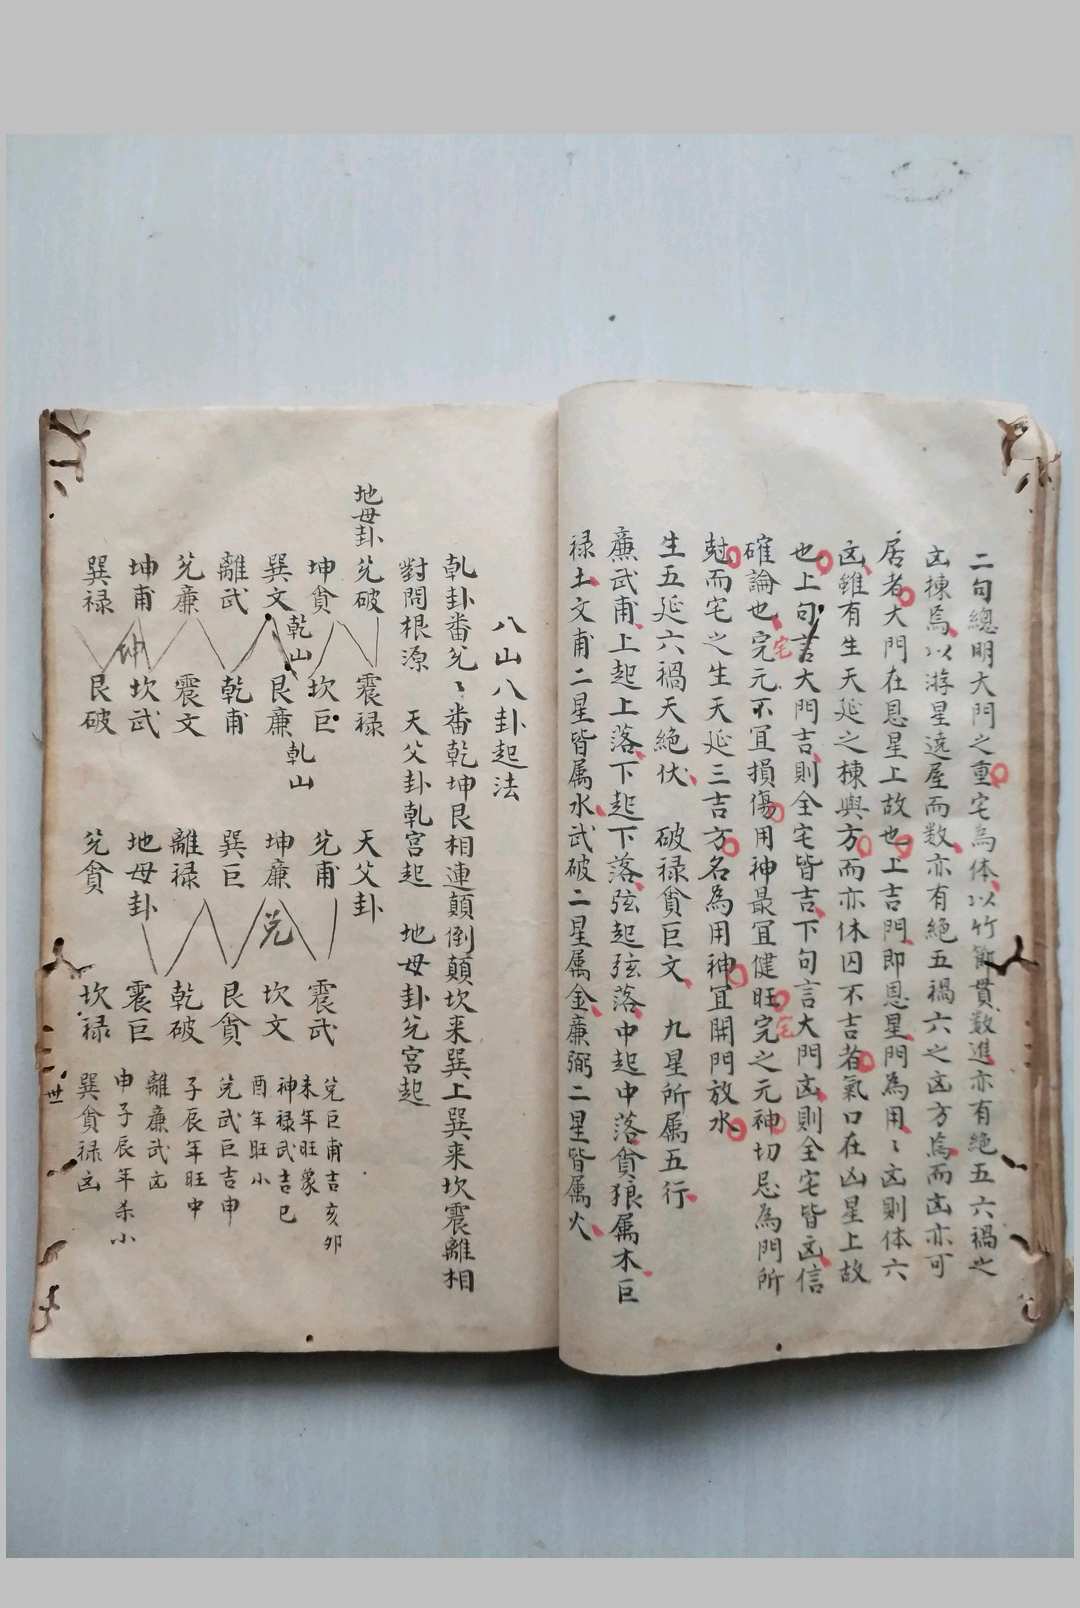 二句總明大門之重宅為体以竹節貫数進亦有絕五六禍之
凶棟焉以游星遶屋而数亦有絕五禍六之凶方焉而凶亦可
居者大門在恩星上故也上吉門即恩星門為用〻凶則体六
凶雖有生天延之棟與方而亦休囚不吉者氣口在凶星上故
也上句言大門吉則全宅皆吉下句言大門凶則全宅皆凶信
確論也宅元不宜損傷用神最宜健旺宅之元神切忌為門所
尅而宅之生天延三吉方名為用神宜開門放水
生五延六禍天絕伏 破禄貪巨文 九星所属五行
廉武甫上起上落下起下落弦起弦落中起中落貪狼属木巨
禄土文甫二星皆属水武破二星属金廉弼二星皆属火
八山八卦起法
乹卦畨兊〻畨乾坤艮相連顛倒顛坎来巽上巽来坎震離相
對問根源 天父卦乹宮起 地母卦兊宮起
地母卦 兊破 震禄
坤貪 坎巨
乾山
巽文 艮廉
乾山
離武 乾甫
兊廉 震文
坤甫 坎武
坤
巽禄 艮破
天父卦
兊甫 震武
坤廉 坎文
兊
巽巨 艮貪
離禄 乾破
地母卦 震巨
兊貪 坎禄
兊巨甫吉亥卯
未年旺象
神禄武吉巳
酉年旺小
兊武巨吉申
子辰年旺中
離廉武凶
申子辰年杀小
巽貪禄凶
卅